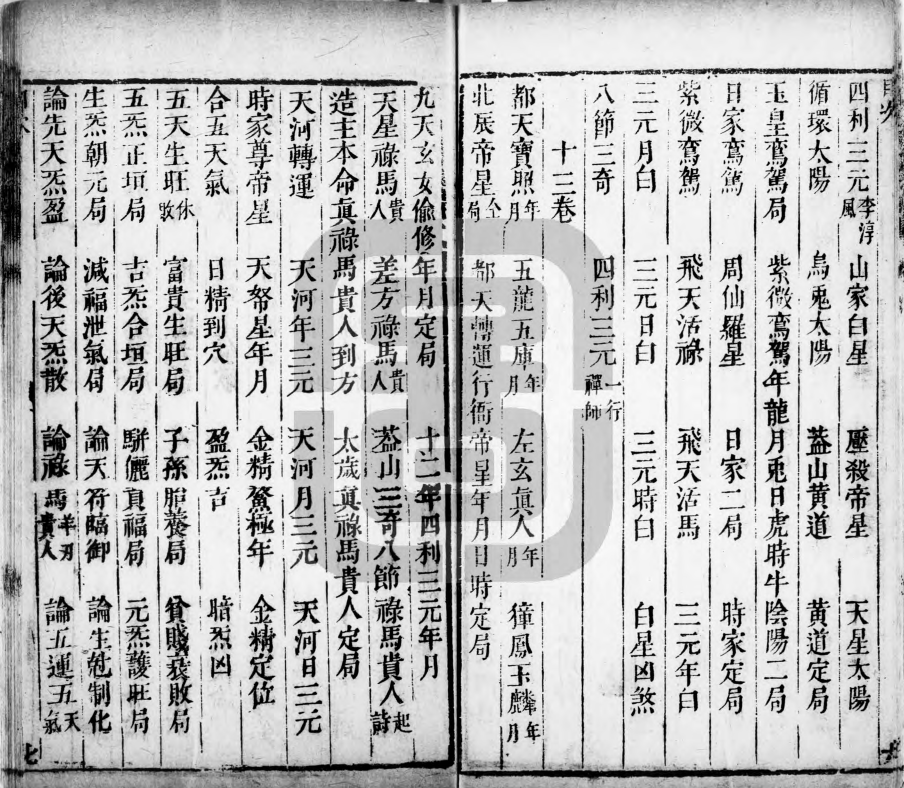 四利三元李淳風 山家白星 壓殺帝星 天星太陽
循環太陽 烏兎太陽 葢山黄道 黄道定局
玉皇鸞駕局 紫微鸞駕 年龍月兎日虎時牛 陰陽二局
日家鸞駕 周仙羅星 日家二局 時家定局
紫微鸞駕 飛天活祿 飛天活馬 三元年白
三元月白 三元日白 三元時白 白星凶煞
八節三奇 四利三元一行禪師
十三卷
都天寶照年月 五龍五庫年月 左玄真人年月 獐鳳玉麟年月
北辰帝星全局 都天轉運行衙帝星年月日時定局
九天玄女偷修年月定局 十二年四利三元年月
天星祿馬貴人 差方祿馬貴人 葢山三奇八節祿馬貴人起詩
造主本命眞祿馬貴人到方 太歲眞祿馬貴人定局
天河轉運 天河年三元 天河月三元 天河日三元
時家尊帝星 天帑星年月 金精鰲極年 金精定位
合五天氣 日精到穴 盈炁吉 暗炁凶
五天生旺休敗 富貴生旺局 子孫脭養局 貧賤衰敗局
五炁正垣局 吉炁合垣局 駢儷眞福局 元炁護旺局
生炁朝元局 減福泄氣局 論天符臨御 論生尅制化
論先天炁盈 論後天炁散 論祿馬羊刃貴人 論五運五天氣
七